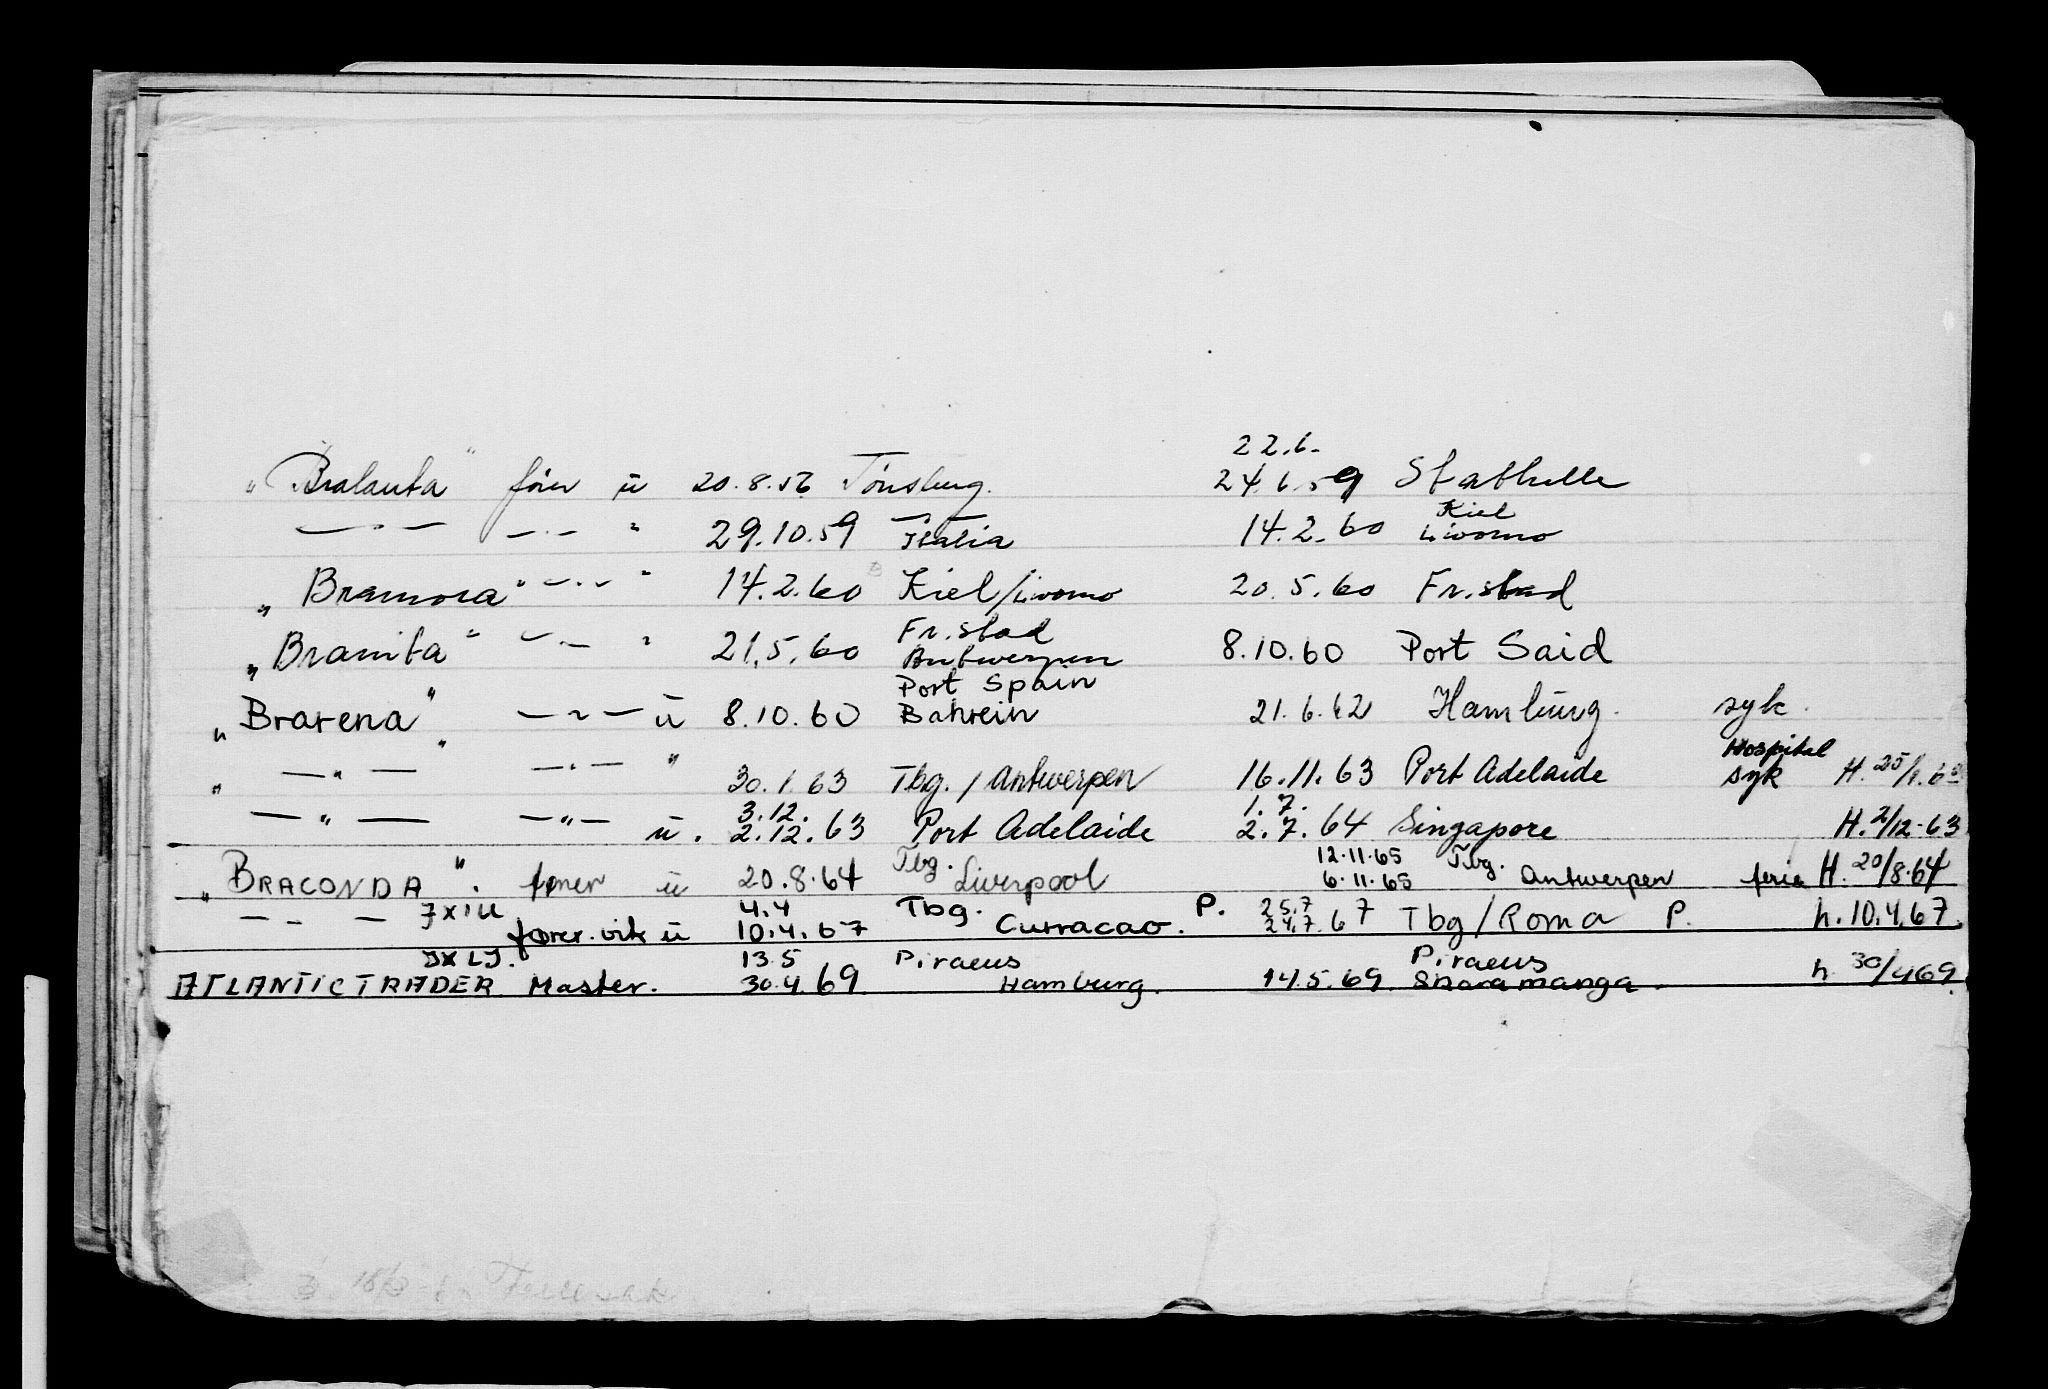 22.6.
"Bralanta" fører ü 20.8.56 Tönsberg. 24.6.59 Stathelle
— " — — " — " 29.10.59 Italia 14.2.60 Kiel Livorno
"Bramora" — " — " 14.2.60 Kiel/Livorno 20.5.60 Fr.stad
"Branita" — " — " 21.5.60 Fr.stad Antwerpen 8.10.60 Port Said
Port Spain
"Brarena" — " — ü 8.10.60 Bahrein 21.6.62 Hamburg. syk.
Hospital
" — " — " — " — " 30.1.63 Tbg. / Antwerpen 16.11.63 Port Adelaide syk H. 25/1.63
3.12. 1.7.
— " — — " — ü. 2.12.63 Port Adelaide 2.7.64 Singapore H. 2/12-63
12.11.65
"BRACONDA". fører ü 20.8.64 Tbg. Liverpool 6.11.65 Tbg. Antwerpen ferie H. 20/8.64
JXIU 4.4 Tbg. P. 25.7
— " — fører. vik ü 10.4.67 Curracao. 24.7.67 Tbg/Roma P. h. 10.4.67
JXLJ. 13.5 Piraeus Piraeus
ATLANTIC TRADER Master. 30.4.69 Hamburg. 14.5.69 h. 30/469.